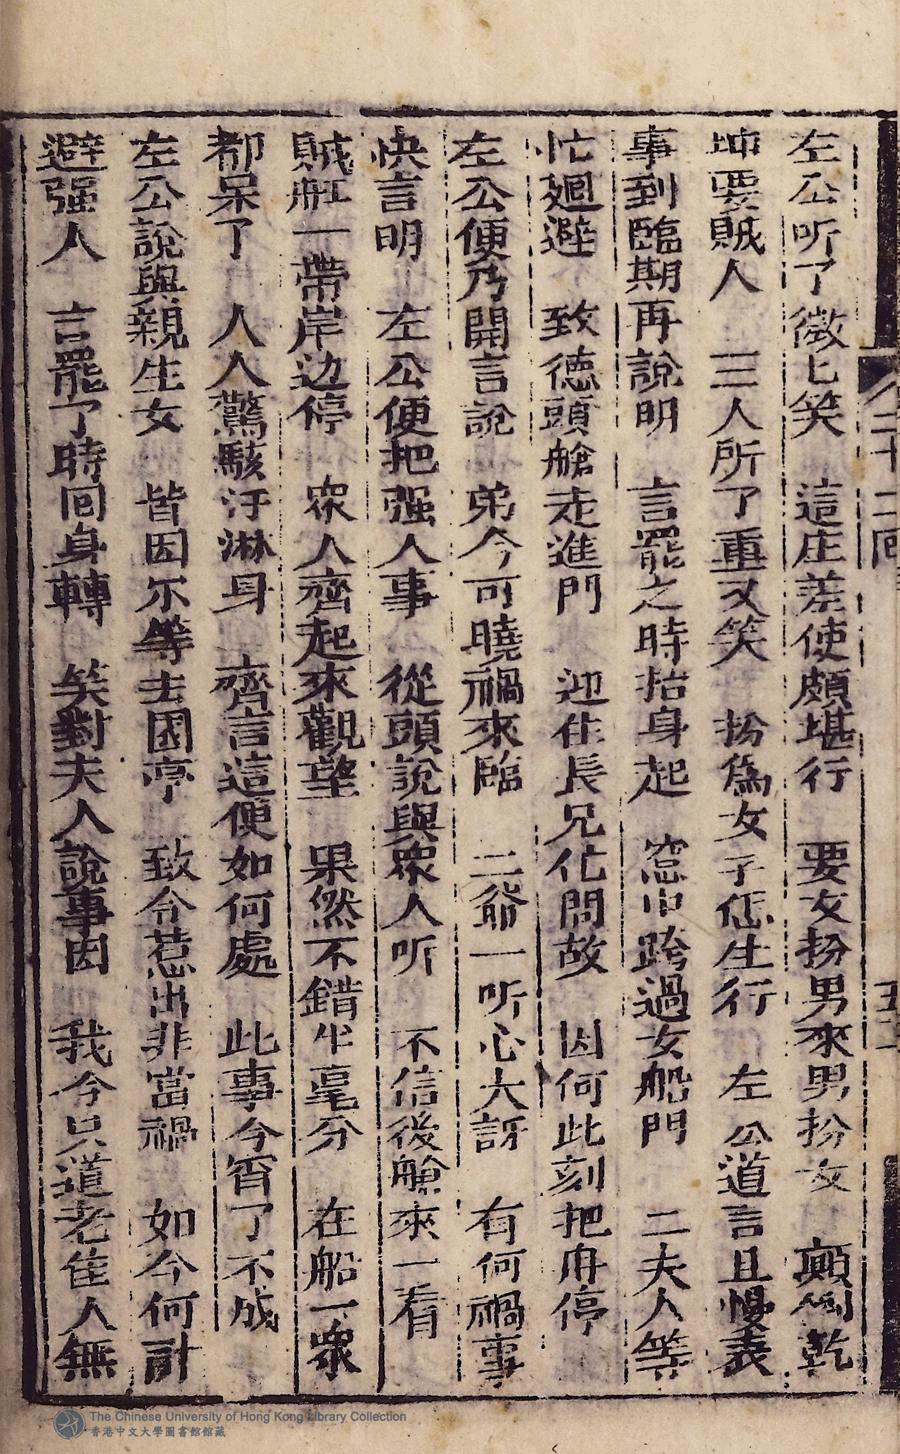 左公听了微匕笑　這庄差使頗堪行　要女扮男來男扮女　顛倒乾
坤要賊人　三人所了重又笑　扮爲女子怎生行　左公道言且慢表
事到臨期再說明　言罷之時抬身起　窓中跨過女船門　二夫人等
忙廻避　致德頭艙走進門　迎住長兄忙問故　因何此刻把舟停
左公便乃開言說　弟今可曉禍來臨　二爺一听心大訝　有何禍事
快言明　左公便把强人事　從頭說與眾人听　不信後艙來一看
賊舡一帶岸边停　眾人齊起來觀望　果然不錯半毫分　在船一眾
都呆了　人人驚駭汙淋身　齊言這便如何處　此事今宵了不成
左公說與親生女　皆因尔等去困亭　致令惹出非當禍　如今何計
避强人　言罷了時囘身轉　笑對夫人說事因　我今只道老隹人無
八二十二囘
The Chinese University of Hong Kong Library Collection
香港中文大學圖書館館藏